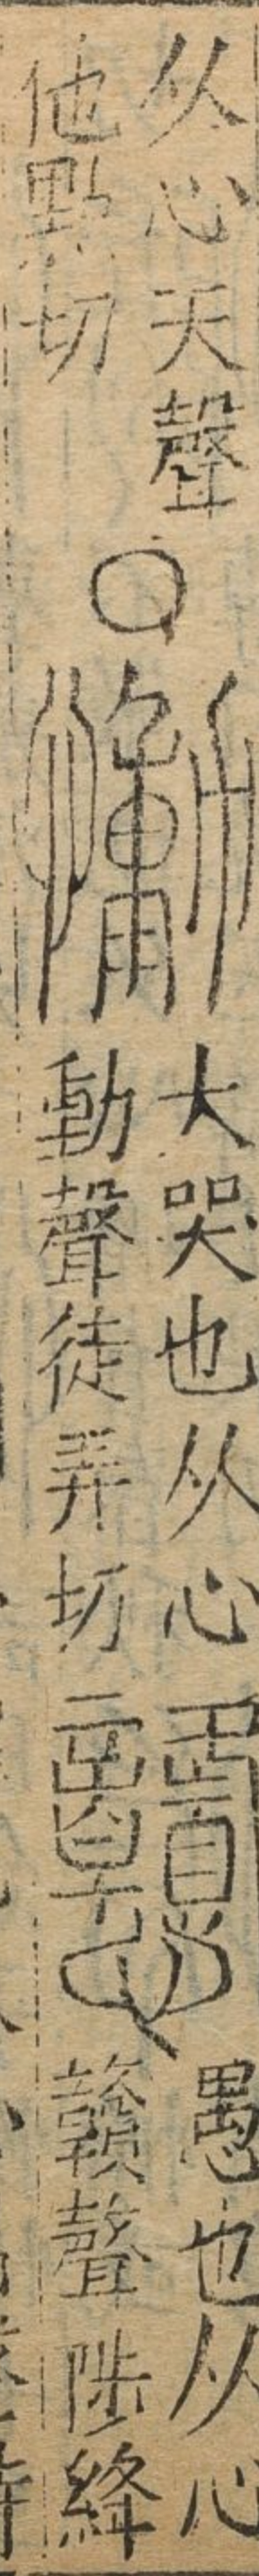 从心天聲
他點切
○
慟
大哭也从心
動聲徒弄切
戇
愚也从心
贛聲陟絳